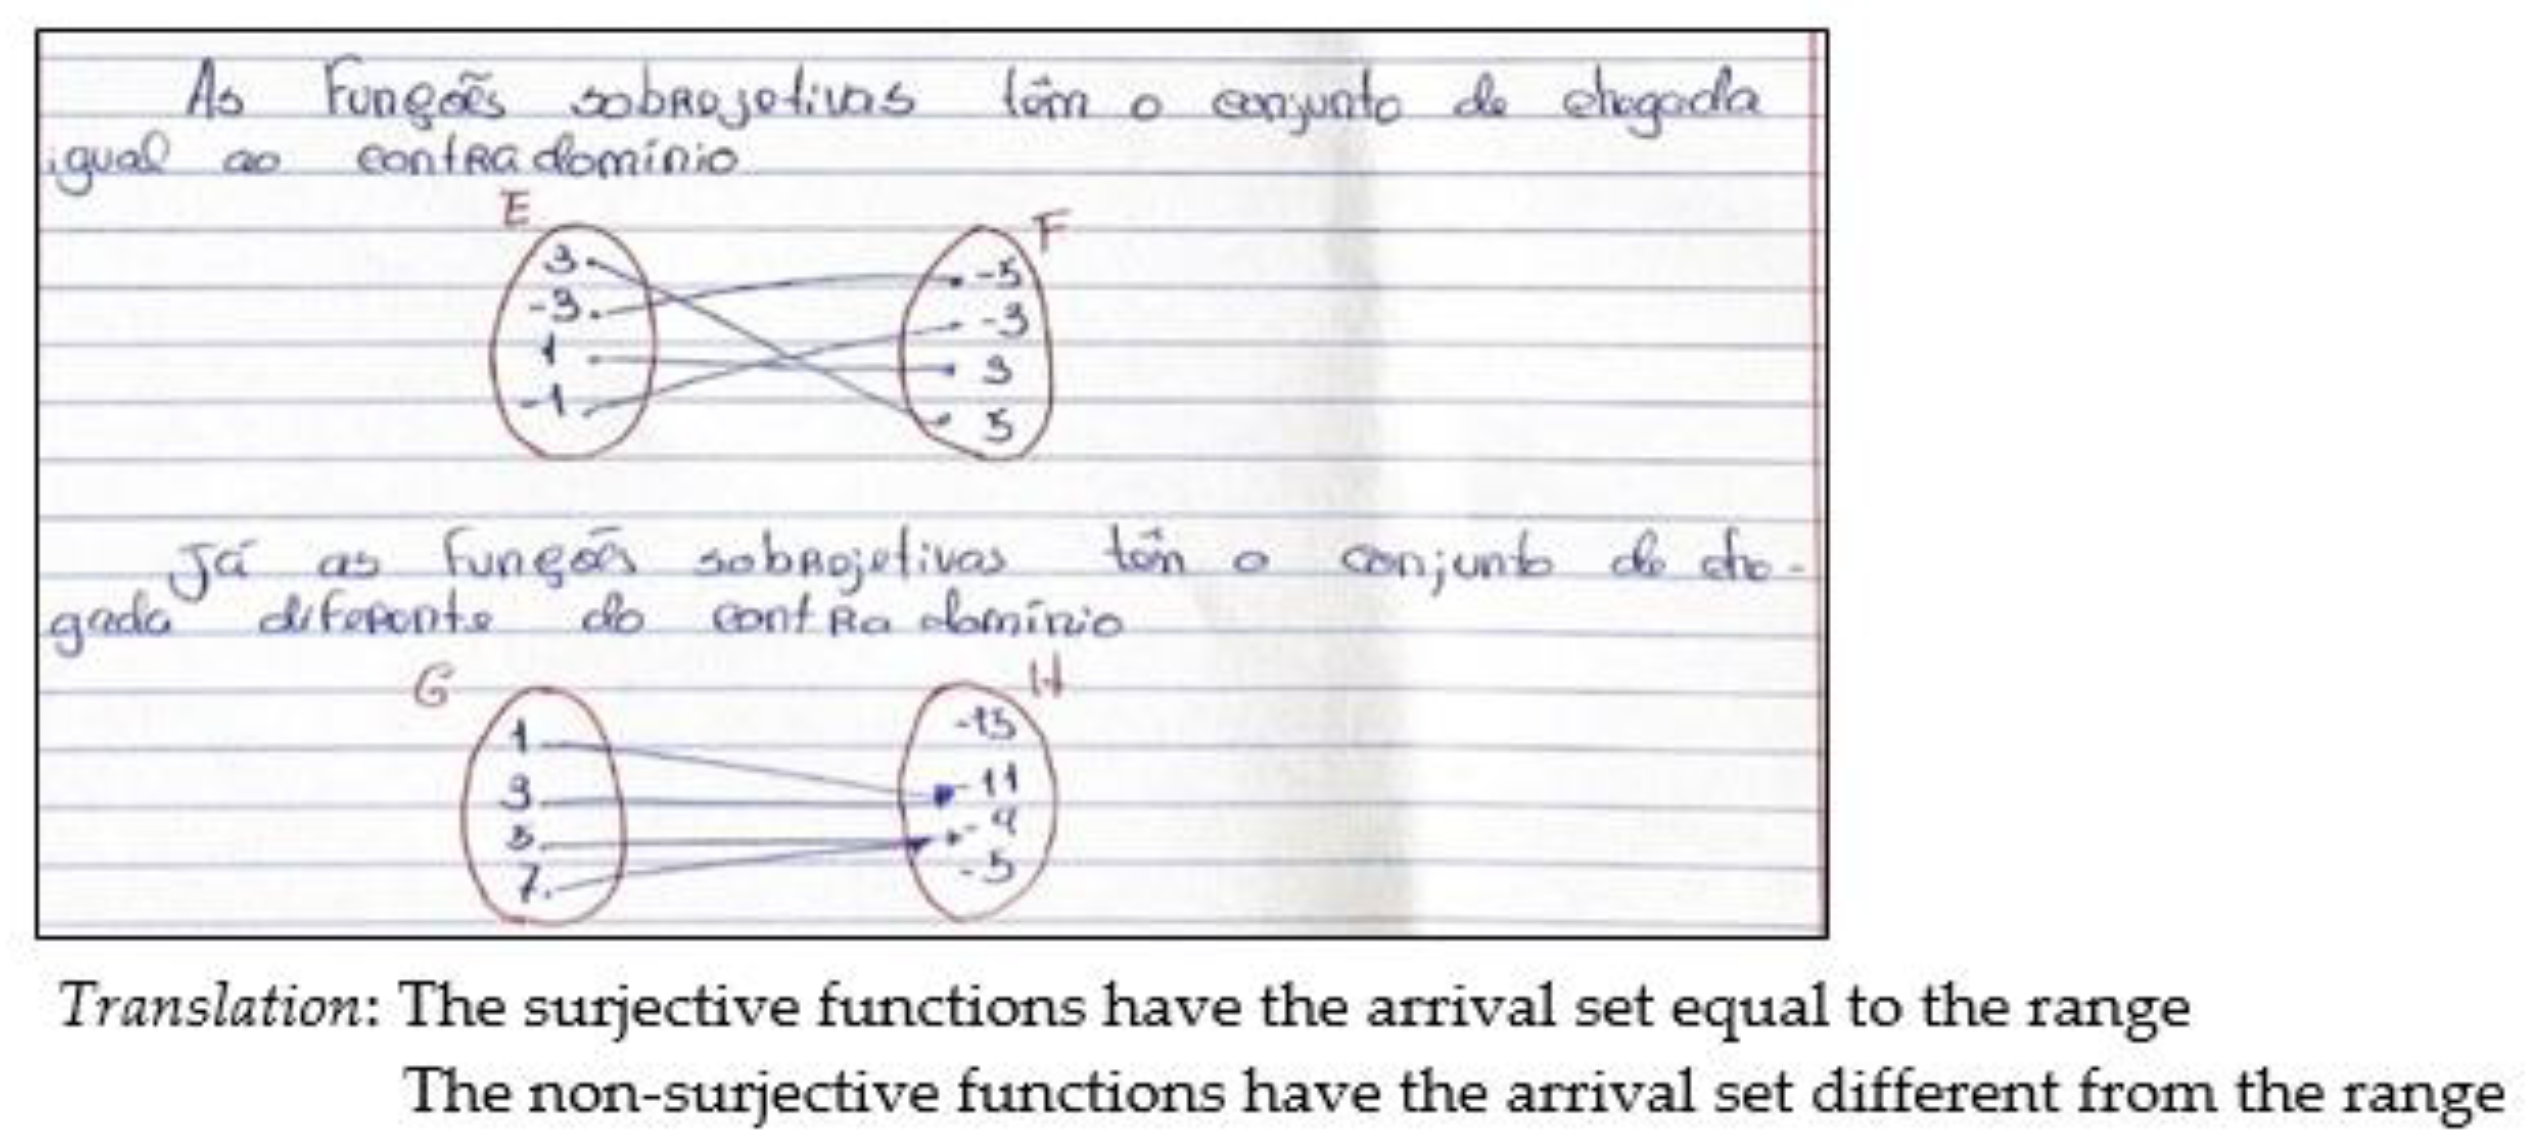 As Funções sobrejetivas têm o conjunto de chegada
igual ao contradomínio
E
F
3
-5
-3
-3
1
3
-1
5
Já as Funções sobrejetivas têm o conjunto de che-
gada diferente do contra domínio
G
H
-15
1
-11
3
-9
5
-5
7
Translation: The surjective functions have the arrival set equal to the range
The non-surjective functions have the arrival set different from the range